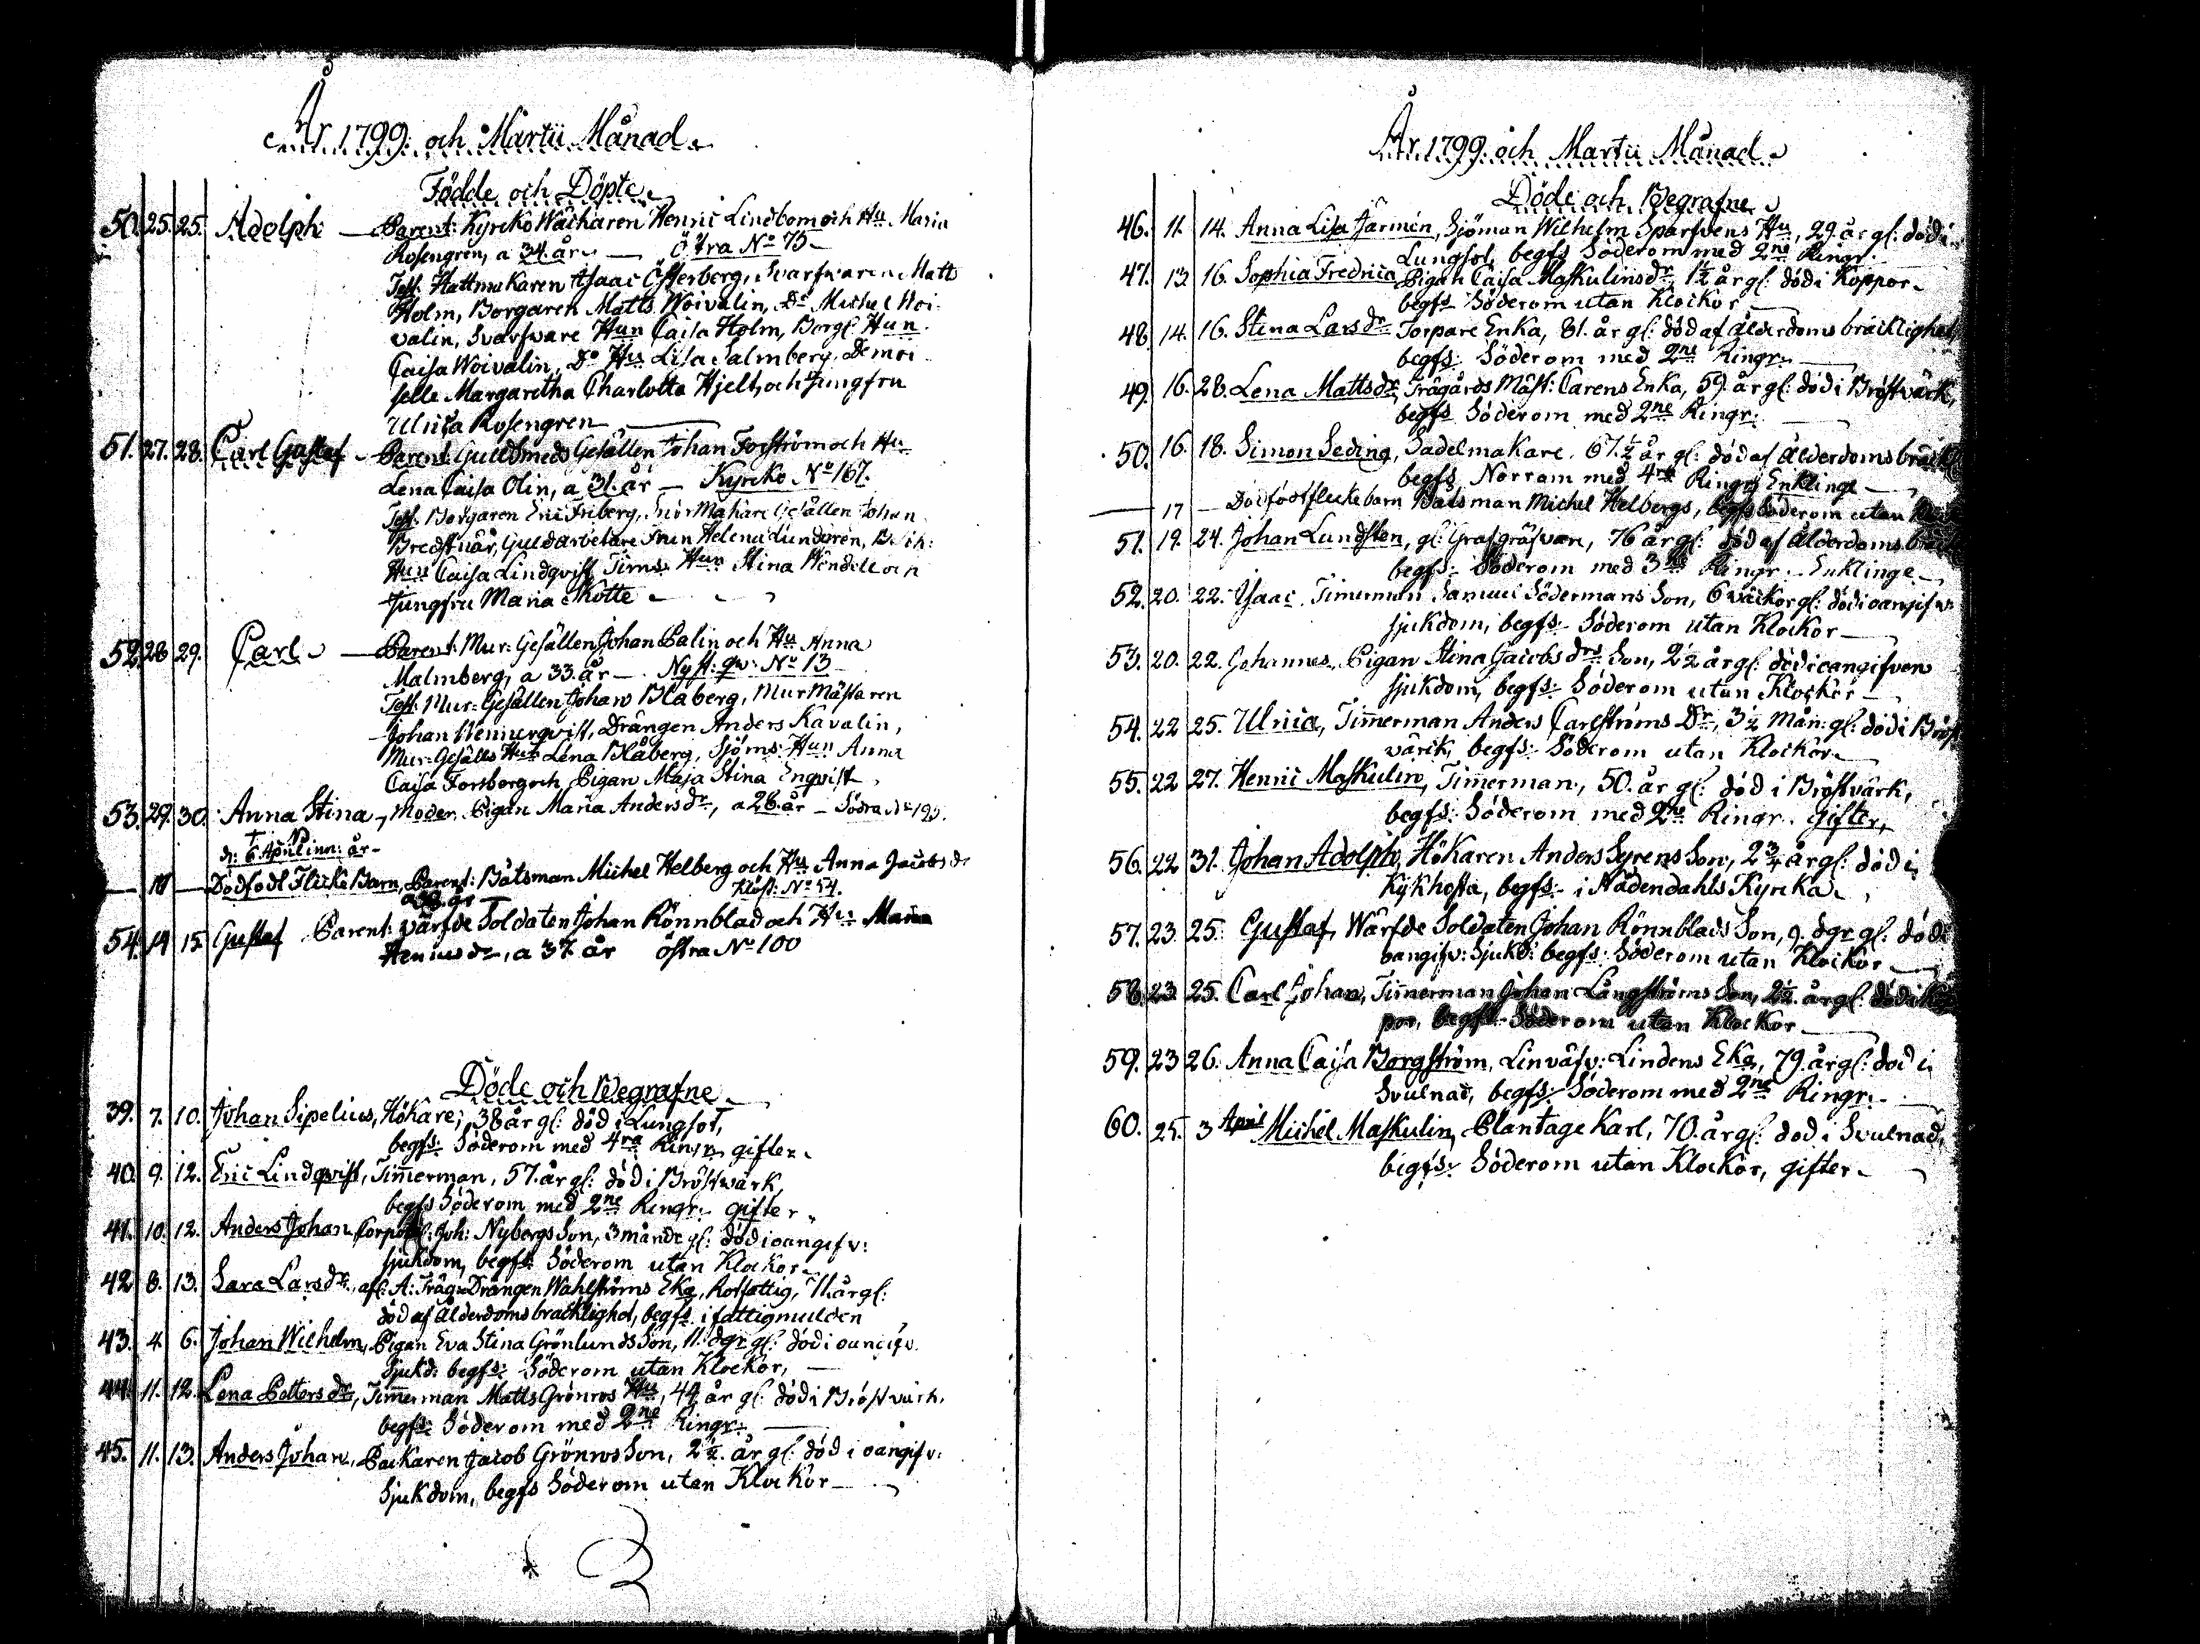 År 1799. och Martii Månad.
Födde och Döpte
50. 25. 25. Adolph — Parent: Kyrcko Wäcktaren Henric Lindbom och Hu Maria
Rosengren, a 34. år — Östra No 75 —
Test: Hattmakaren Isaac Österberg, Svarfwaren Matt
Holm, Borgaren Matts Woivalin, Do Michel Woi-
valin, Svarfvare Hun Caisa Holm, Borgl: Hun
Caisa Woivalin, Do Hu Lisa Salmberg, Demoi-
selle Margaretha Charlotta Hjelt, och Jungfru
Ulrica Rosengren
51. 27. 28. Carl Gustaf — Parent: Guldsmeds Gesällen Johan Forström och Hu
Lena Caisa Olin, a 31. år — Kyrcko No 167.
Test: Borgaren Eric Friberg, Snörmakare Gesällen Johan
Bredtnär, Guldarbetare Helena Lundgren,
Hun Caisa Lindqvist, Timr: Hun Stina Wendell och
Jungfru Maria Skotte
52. 28 29. Carl — Parent: Mur-Gesällen Johan Palin och Hu Anna
Malmberg, a 33. år — Nyst: qv: No 13
Test: Mur-Gesällen Johan Blåberg, Murmästaren
Johan Wennerqvist, Drängen Anders Kavalin,
Mur-Gesälls Hun Lena Blåberg, Sjöms: Hun Anna
Caisa Forsberg och Pigan Maja Stina Enqvist
53. 29. 30. Anna Stina, Moder Pigan Maria Andersdr, a 28. år — Södra No 190.
† d: 6 April inn: år
— 17 — Dödfödt Flicke Barn, Parent: Båtsman Michel Helberg och Hu Anna Jacobsdr
a 38. år — Klöst: No 54.
54. 14 15. Gustaf Parent: värfde Soldaten Johan Rönnblad och Hu Maria
Henricsdr, a 37. år östra No 100
Döde och Begrafne
39. 7. 10. Johan Sipelius, Hökare, 38 år gl: död i Lungsot,
begfs: Söderom med 4ra Ringn: gifter
40. 9. 12. Eric Lindqvist, Timerman, 57. år gl: död i Bröstwärk,
begfs Söderom med 2ne Ringr: gifter
41. 10. 12. Anders Johan Corporal: Joh: Nybergs Son, 3 månde gl: död i oangifv:
sjukdom, begfs: Söderom utan Klockor
42 8. 13. Sara Larsdr, afl: A: Träg:Drängen Wahlströms Eka, Rotfattig, 71. år gl:
död af Ålderdoms bräcklighet, begfs i fattigmulden
43. 4. 6. Johan Wilhelm, Pigan Eva Stina Grönlunds Son, 11. dgr gl: död i oangifv.
Sjukd: begfs: Söderom utan Klockor,
44. 11. 12. Lena Pettersdr, Timerman Matts Grönros Hu, 44 år gl: död i Bröstvärk.
begfs: Söderom med 2ne Ringr:
45. 11. 13. Anders Johan, Packaren Jacob Grönros Son, 2½. år gl: död i oangifv:
Sjukdom, begfs Söderom utan Klockor
År 1799. och Martii Månad
Döde och Begrafne
46. 11. 14. Anna Lisa Jarmén, Sjöman Wilhelm Sparfvens Hu, 29. år gl: död i
Lungsot, begfs Söderom med 2ne Ringr.
47. 13 16. Sophia Fredrica, Pigan Caisa Maskulinsdr, 1½ år gl: död i Koppor
begfs Söderom utan Klockor
48. 14. 16. Stina Larsdr Torpare Enka, 81. år gl: död af ålderdoms bräcklighet,
begfs: Söderom med 2ne Ringr:
49. 16. 28. Lena Mattsdr, Trägårds Mäst: Carens Enka, 59. år gl: död i Bröstvärk,
begfs Söderom med 2ne Ringr:
50. 16. 18. Simon Seding, Sadelmakare. 67.½ år gl: död af ålderdoms bräckl
begfs Norrom med 4ra Ringr: Enklinge
— 17 — Dödfödt flicke barn Båtsman Michel Helbergs, begfs Söderom utan
51. 19. 24. Johan Lundsten, gl: Grafgräfvare, 76 år gl: död af ålderdoms bräck
begfs: Söderom med 3ne Ringr. Enklinge
52. 20. 22. Isaac Timerman Samuel Södermans Son, 6 wäckor gl: död i oangifv
sjukdom, begfs: Söderom utan Klockor
53. 20. 22. Johannes, Pigan Stina Jacobsdrs Son, 2½ år gl: död i oangifven
sjukdom, begfs: Söderom utan Klockor
54. 22 25. Ulrica, Timerman Anders Carlströms Dr, 3½ Mån: gl: död i Bröst
värck, begfs: Söderom utan Klockor
55. 22 27. Henric Maskulin, Timerman, 50. år gl: död i Bröstvärk,
begfs: Söderom med 2ne Ringr. gifter,
56. 22 31. Johan Adolph, Hökaren Anders Syrens Son, 2¾ år gl: död i
Kikhosta, begfs: i Nådendahls Kyrcka
57. 23. 25. Gustaf, Wärfde Soldaten Johan Rönnblads Son, 9. dgr gl: död i
oangifv: Sjukd: begfs: Söderom utan Klockor
58. 23. 25. Carl Johan, Timerman Johan Långströms Son, 2½. år gl: död i Kop
por, begfs: Söderom utan Klockor
59. 23 26. Anna Caisa Borgström, Linväfv: Lindens Eka, 79. år gl: död i
Svulnad, begfs: Söderom med 2ne Ringr:
60. 25. 3 April Michel Maskulin, Plantage Karl, 70. år gl: död i Svulnad,
begfs: Söderom utan Klockor, gifter